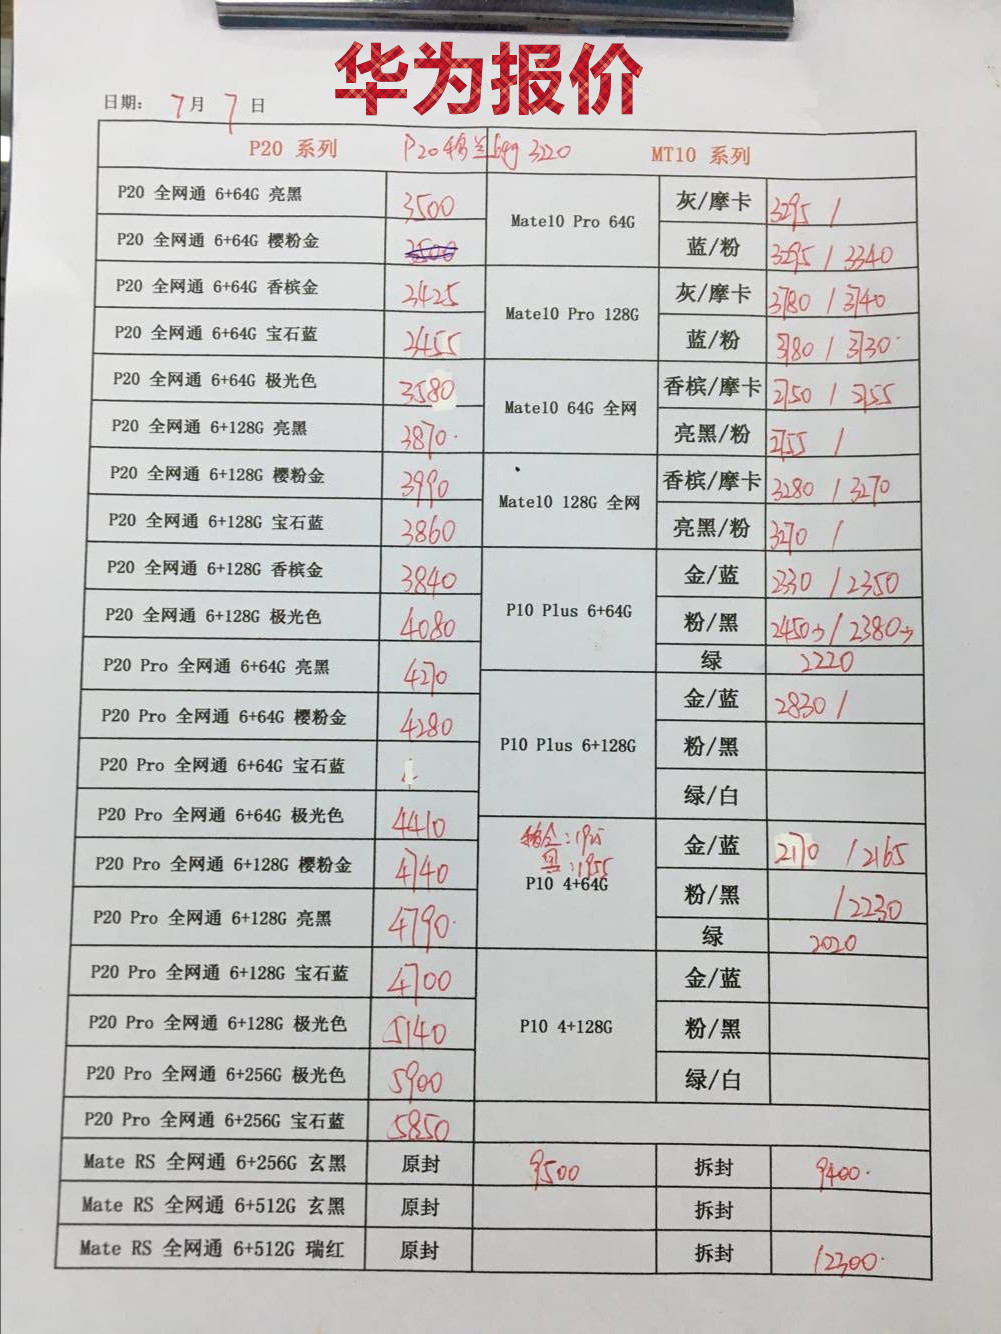 华为报价
日期： 7月 7日
P20 系列 P20 64g 3220 MT10 系列
P20 全网通 6+64G 亮黑 3500 Mate10 Pro 64G 灰/摩卡 3295 /
P20 全网通 6+64G 樱粉金 3500 蓝/粉 3295 / 3340
P20 全网通 6+64G 香槟金 3425 Mate10 Pro 128G 灰/摩卡 3780 / 3740
P20 全网通 6+64G 宝石蓝 3455 蓝/粉 3780 / 3730
P20 全网通 6+64G 极光色 3580 Mate10 64G 全网 香槟/摩卡 2750 / 2755
P20 全网通 6+128G 亮黑 3870 亮黑/粉 2755 /
P20 全网通 6+128G 樱粉金 3990 Mate10 128G 全网 香槟/摩卡 3280 / 3270
P20 全网通 6+128G 宝石蓝 3860 亮黑/粉 3270 /
P20 全网通 6+128G 香槟金 3840 P10 Plus 6+64G 金/蓝 2330 / 2350
P20 全网通 6+128G 极光色 4080 粉/黑 2450 / 2380
P20 Pro 全网通 6+64G 亮黑 4270 绿 2220
P20 Pro 全网通 6+64G 樱粉金 4280 P10 Plus 6+128G 金/蓝 2830 /
P20 Pro 全网通 6+64G 宝石蓝 粉/黑
P20 Pro 全网通 6+64G 极光色 4410 绿/白
P20 Pro 全网通 6+128G 樱粉金 4740 P10 4+64G :1925 :1955 金/蓝 2170 / 2165
P20 Pro 全网通 6+128G 亮黑 4790 粉/黑 / 2230
绿 2020
P20 Pro 全网通 6+128G 宝石蓝 4700 P10 4+128G 金/蓝
P20 Pro 全网通 6+128G 极光色 5140 粉/黑
P20 Pro 全网通 6+256G 极光色 5900 绿/白
P20 Pro 全网通 6+256G 宝石蓝 5850
Mate RS 全网通 6+256G 玄黑 原封 9500 拆封 9400
Mate RS 全网通 6+512G 玄黑 原封 拆封
Mate RS 全网通 6+512G 瑞红 原封 拆封 12300